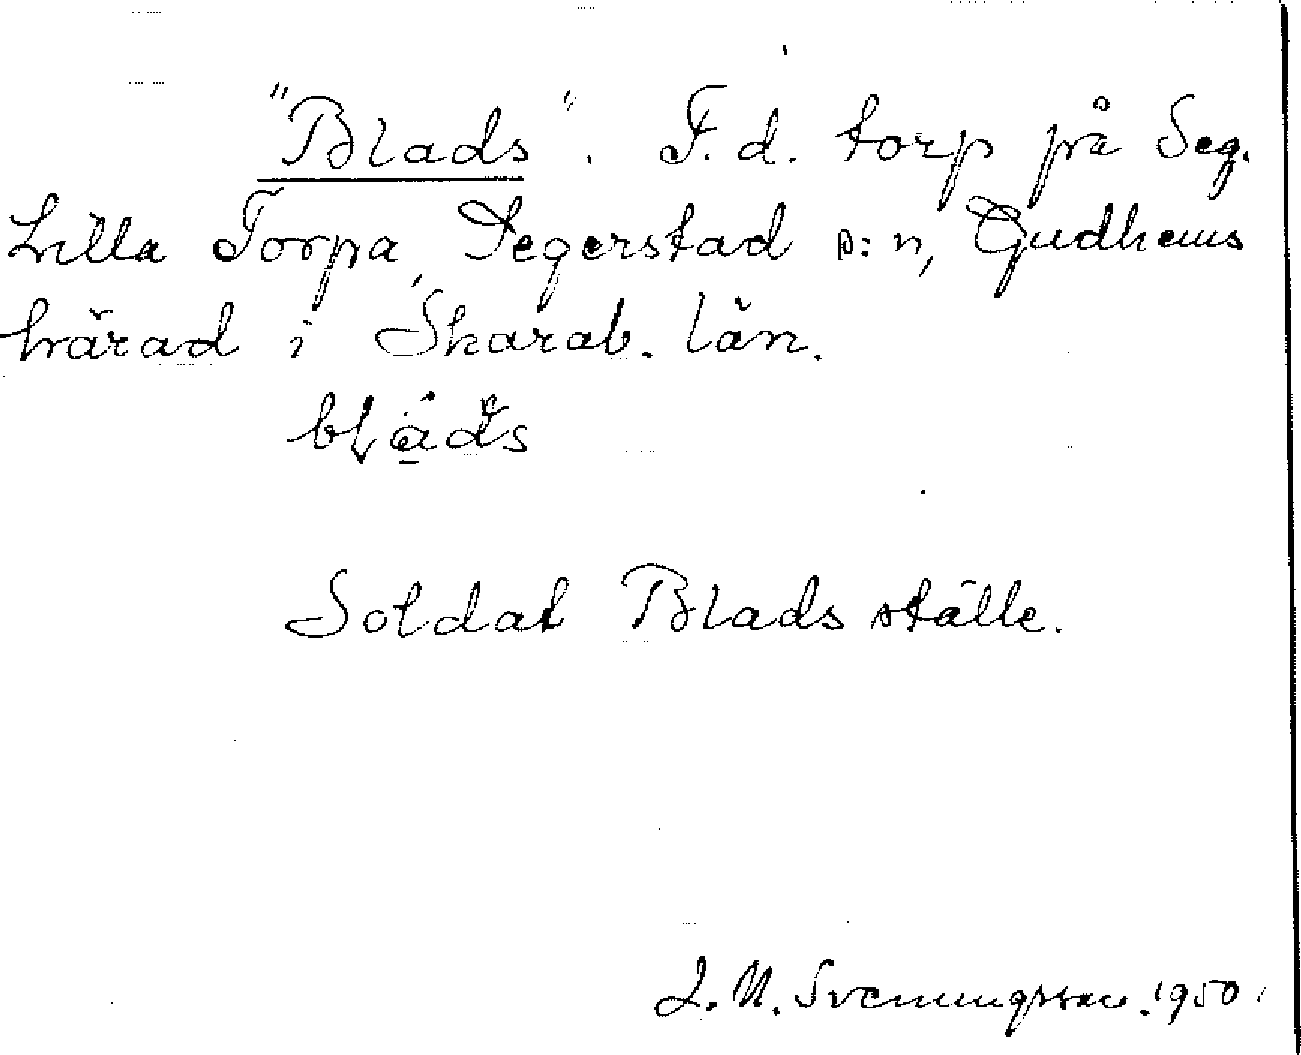 "Blads". F.d. torp på Seg.
Lilla Torpa, Segerstad s:n, Gudhems
härad i Skarab. län.
Soldat Blads ställe.
Svenningsson. 1950